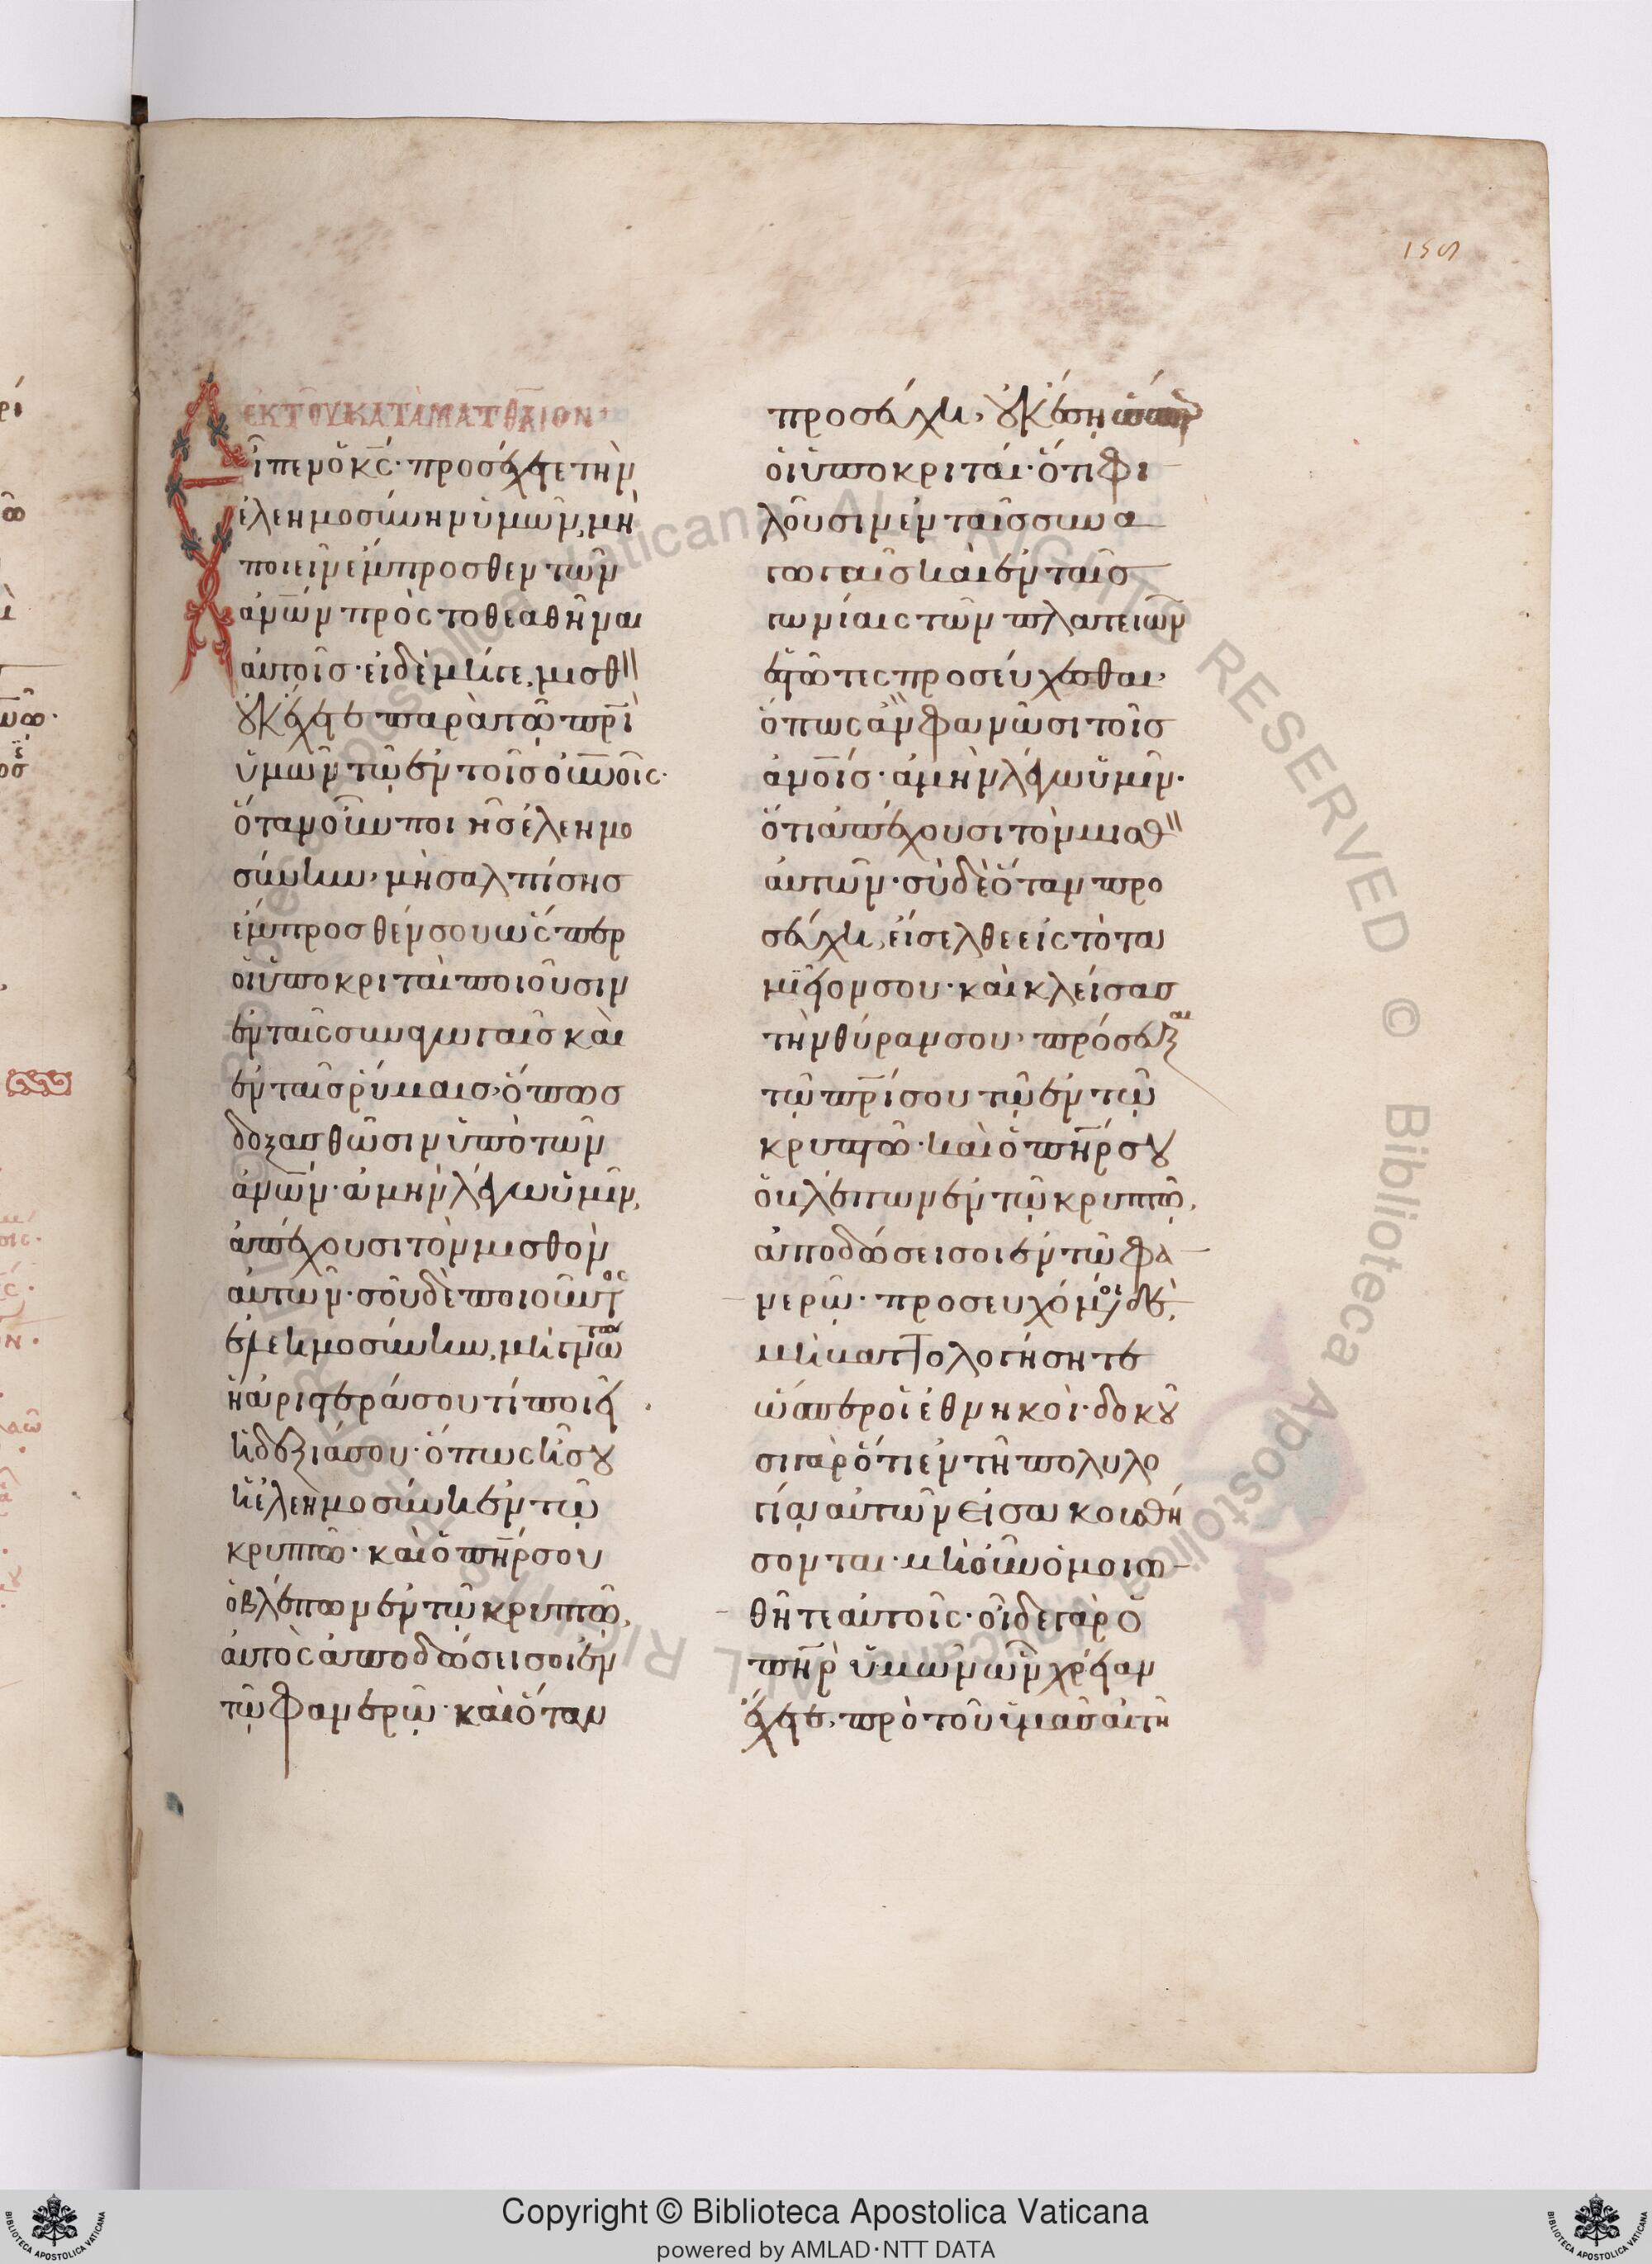 156
ἐκ τοῦ κατὰ Ματθαῖον
Εἶπεν ὁ κς· προσέχετε τὴν
ἐλεημοσύνην ὑμῶν, μὴ
ποιεῖν ἔμπροσθεν τῶν
ἀνων πρὸς το θεαθῆναι
αὐτοῖς· εἰ δὲ μήγε, μισθ
οὐκ ἔχετε παρὰ τῶ πρι
ὑμῶν τῶ ἐν τοῖς οὐνοις·
ὅταν οὖν ποιῆς ἐλεημο
σύνην, μὴ σαλπίσης
ἔμπροσθέν σου ὥσπερ
οἱ ὑποκριταὶ ποιοῦσιν
ἐν ταῖς συναγωγαῖς καὶ
ἐν ταῖς ῥύμαις, ὅπως
δοξασθῶσιν ὑπὸ τῶν
ἀνων· ἀμὴν λέγω ὑμῖν,
ἀπέχουσι τὸν μισθὸν
αὐτῶν· σοῦ δὲ ποιοῦντος
ἐλεημοσύνην, μὴ γνώτω
ἡ ἀριστερά σου τί ποιεῖ
ἡ δεξιά σου· ὅπως ῆ σου
ἡ ἐλεημοσύνη ἐν τῶ
κρυπτῶ· καὶ ὁ πηρ σου
ὁ βλέπων ἐν τῶ κρυπτῶ,
αὐτὸς ἀποδώσει σοι ἐν
τῶ φανερῶ· καὶ ὅταν
προσεύχη, οὐκ έση ὥσπερ
οἱ ὑποκριταί· ὅτι φι
λοῦσιν ἐν ταῖς συνα
γωγαῖς καὶ ἐν ταῖς
γωνίαις τῶν πλατειῶν
ἑστῶτες προσεύχεσθαι,
ὅπως ἂν φανῶσι τοῖς
ἀνοις· ἀμὴν λέγω ὑμῖν·
ὅτι ἀπέχουσι τὸν μισθ
αὐτῶν· σὺ δὲ ὅταν προ
σεύχη, εἴσελθε εἰς τὸ τα
μιεῖον σου· καὶ κλείσας
τὴν θύραν σου, πρόσευξαι
τῶ πρι σου τῶ ἐν τῶ
κρυπτῶ· καὶ ὁ πηρ σου
ὁ βλέπων ἐν τῶ κρυπτῶ,
ἀποδώσει σοι ἐν τῶ φα
νερῶ· προσευχόμενοι δὲ,
μὴ βαττολογήσητε
ὥσπερ οἱ ἐθνηκοί· δοκοῦ
σι γὰρ ὅτι ἐν τῆ πολυλο
γία αὐτῶν εἰσακουσθή
σονται· μὴ οὖν ὁμοιω
θῆτε αὐτοῖς· οἶδε γὰρ ὁ
πηρ ὑμῶν ὧν χρείαν
ἔχετε, πρὸ τοῦ ὑμᾶς αἰτῆ
Copyright © Biblioteca Apostolica Vaticana
powered by AMLAD·NTT DATA